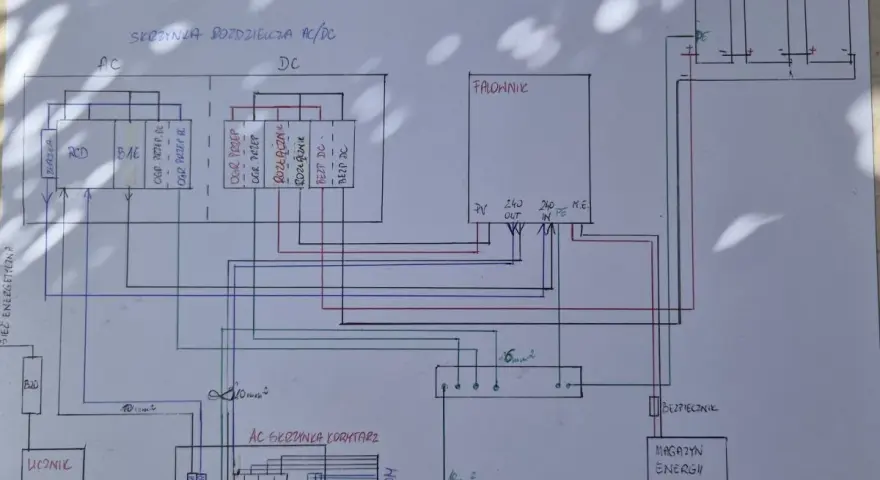 SKRZYNKA ROZDZIELCZA AC/DC
AC
DC
FALOWNIK
PE
RCD
B16
OGR PRZEP AC
OGR PRZEP AC
OGR PRZEP
OGR PRZEP
ROZŁĄCZNIK
ROZŁĄCZNIK
BEZP DC
BEZP DC
PV
240
OUT
240
IN
PE
M.E.
16mm²
10mm²
10mm²
BEZPIECZNIK
AC SKRZYNKA KORYTARZ
LICZNIK
MAGAZYN
ENERGII